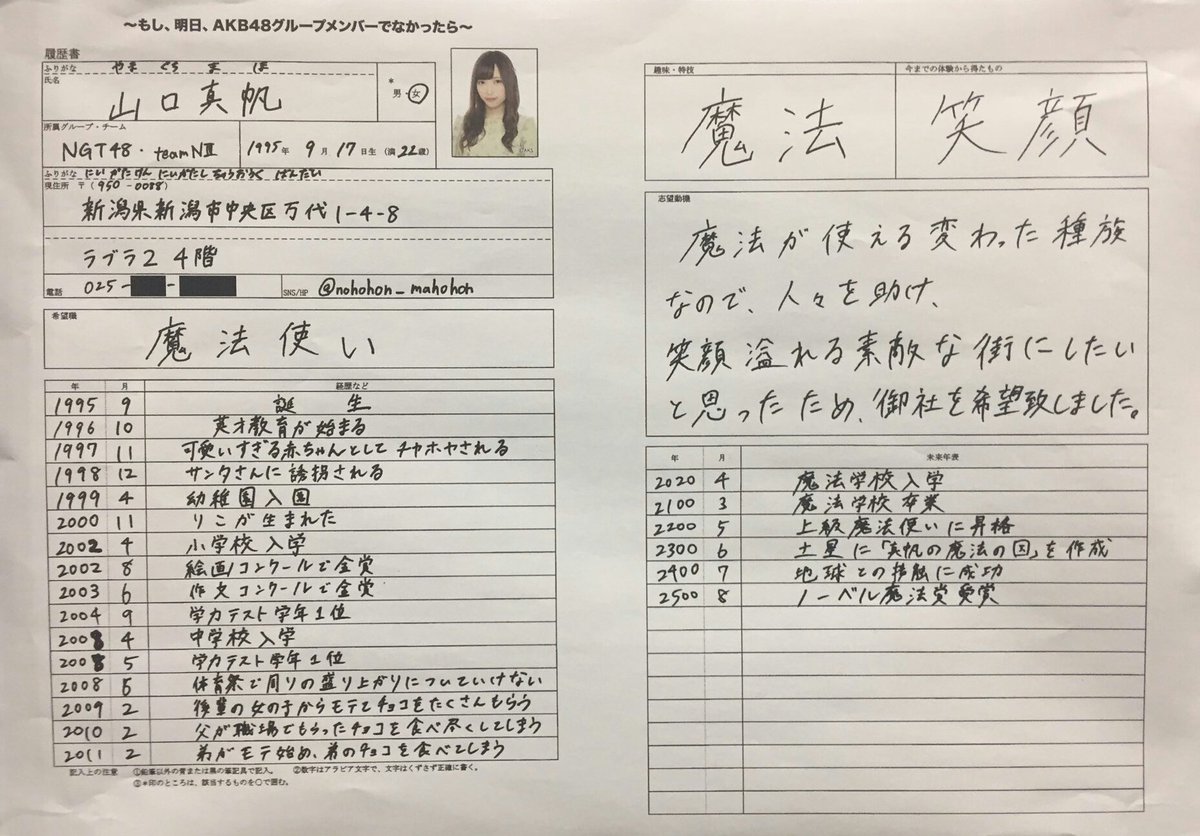 ～もし、明日、AKB48グループメンバーでなかったら～
履歴書
ふりがな やま ぐち ま ほ
氏名 山口真帆
* 男・女
所属グループ・チーム
NGT48・teamNⅢ
1995年 9月 17日生 (満22歳)
ふりがな にいがたけん にいがたし ちゅうおうく ばんだい
現住所 〒(950-0088)
新潟県新潟市中央区万代1-4-8
ラブラ2 4階
電話 025-
SNS/HP @nohohon_mahohon
希望職
魔法使い
年 月 経歴など
1995 9 誕生
1996 10 英才教育が始まる
1997 11 可愛いすぎる赤ちゃんとしてチヤホヤされる
1998 12 サンタさんに誘拐される
1999 4 幼稚園入園
2000 11 りこが生まれた
2002 4 小学校入学
2002 8 絵画コンクールで金賞
2003 6 作文コンクールで金賞
2004 9 学力テスト学年1位
2008 4 中学校入学
2008 5 学力テスト学年1位
2008 5 体育祭で周りの盛り上がりについていけない
2009 2 後輩の女の子からモテてチョコをたくさんもらう
2010 2 父が職場でもらったチョコを食べ尽くしてしまう
2011 2 弟がモテ始め、弟のチョコを食べてしまう
記入上の注意 ①鉛筆以外の青または黒の筆記具で記入。 ②数字はアラビア文字で、文字はくずさず正確に書く。
③*印のところは、該当するものを○で囲む。
趣味・特技
魔法
今までの体験から得たもの
笑顔
志望動機
魔法が使える変わった種族
なので、人々を助け、
笑顔溢れる素敵な街にしたい
と思ったため、御社を希望致しました。
年 月 未来年表
2020 4 魔法学校入学
2100 3 魔法学校卒業
2200 5 上級魔法使いに昇格
2300 6 土星に「真帆の魔法の国」を作成
2400 7 地球との接触に成功
2500 8 ノーベル魔法賞受賞